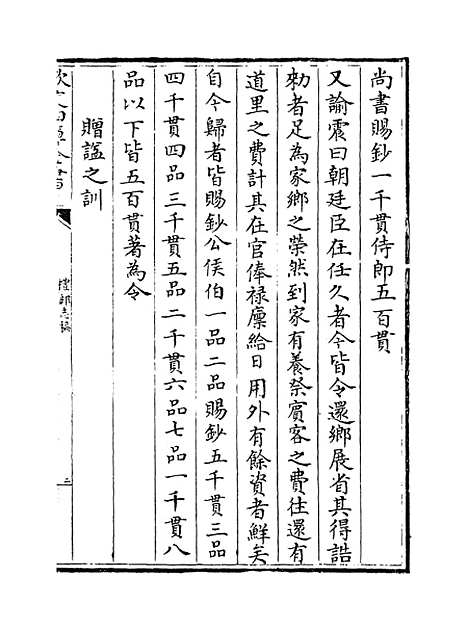 尚書賜鈔一千貫侍郎五百貫
又諭震曰朝廷臣在任久者今皆令還鄉展省其得誥
勑者足為家鄉之榮然到家有養祭賓客之費往還有
道里之費計其在官俸祿廩給日用外有餘資者鮮矣
自今歸者皆賜鈔公侯伯一品二品賜鈔五千貫三品
四千貫四品三千貫五品二千貫六品七品一千貫八
品以下皆五百貫著為令
贈諡之訓
欽定四庫全書
禮部志稿